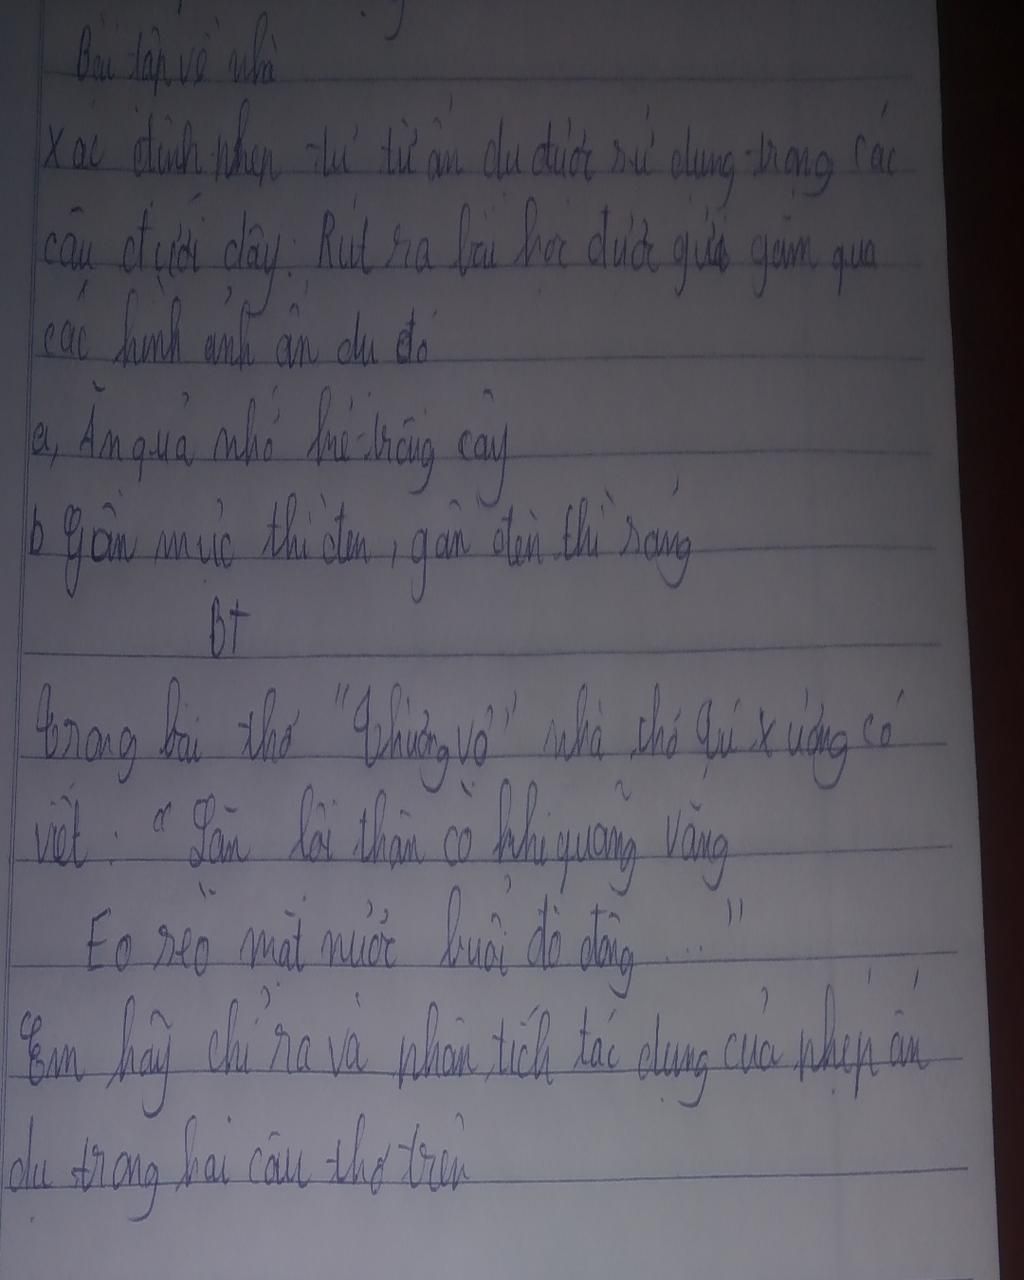 Bài tập về nhà
Xác định phép tu từ ẩn dụ được sử dụng trong các
câu dưới đây. Rút ra bài học được gửi gắm qua
các hình ảnh ẩn dụ đó
a, Ăn quả nhớ kẻ trồng cây
b Gần mực thì đen, gần đèn thì rạng
BT
Trong bài thơ "Thương vợ" nhà thơ Tú Xương có
viết: "Lặn lội thân cò khi quãng vắng
Eo sèo mặt nước buổi đò đông..."
Em hãy chỉ ra và phân tích tác dụng của phép ẩn
dụ trong hai câu thơ trên